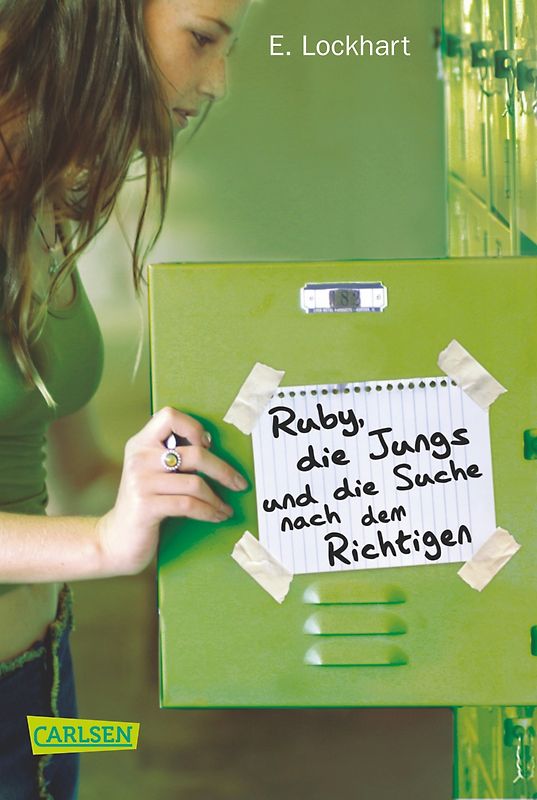 E. Lockhart
Ruby,
die Jungs
und die Suche
nach dem
Richtigen
CARLSEN